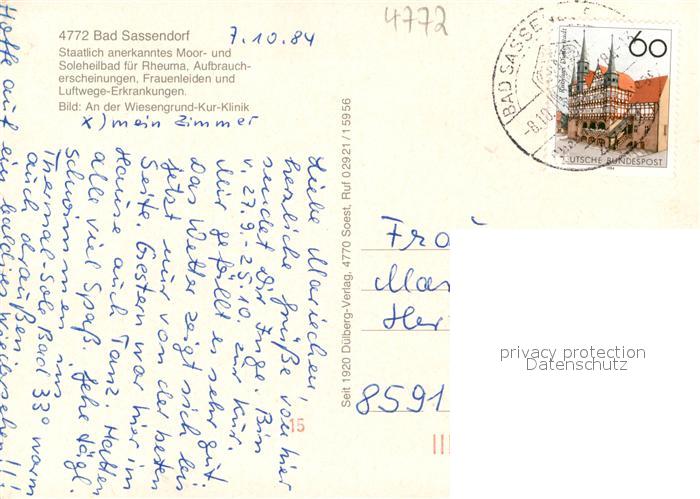 4772 Bad Sassendorf
Staatlich anerkanntes Moor- und
Soleheilbad für Rheuma, Aufbrauch-
erscheinungen, Frauenleiden und
Luftwege-Erkrankungen.
Bild: An der Wiesengrund-Kur-Klinik
x) mein Zimmer
7.10.84
4772
Liebe Mariechen,
herzliche Grüße von hier
sendet Dir Inge. Bin
v. 27.9.-25.10. zur Kur.
Mir gefällt es sehr gut.
Das Wetter zeigt sich bei
jetzt nur von der besten
Seite. Gestern war hier im
Hause auch Tanz. Hatten
alle viel Spaß. Gehe tägl.
schwimmen ins
Thermal-Sole Bad 33° warm
auch draußen
Hoffe auf ein baldiges Wiedersehen!!!
Seit 1920 Dülberg-Verlag, 4770 Soest, Ruf 02921/15956
BAD SASSE
-8.10.
60
DEUTSCHE BUNDESPOST
Fra
Mar
Her
8591
15
privacy protection
Datenschutz